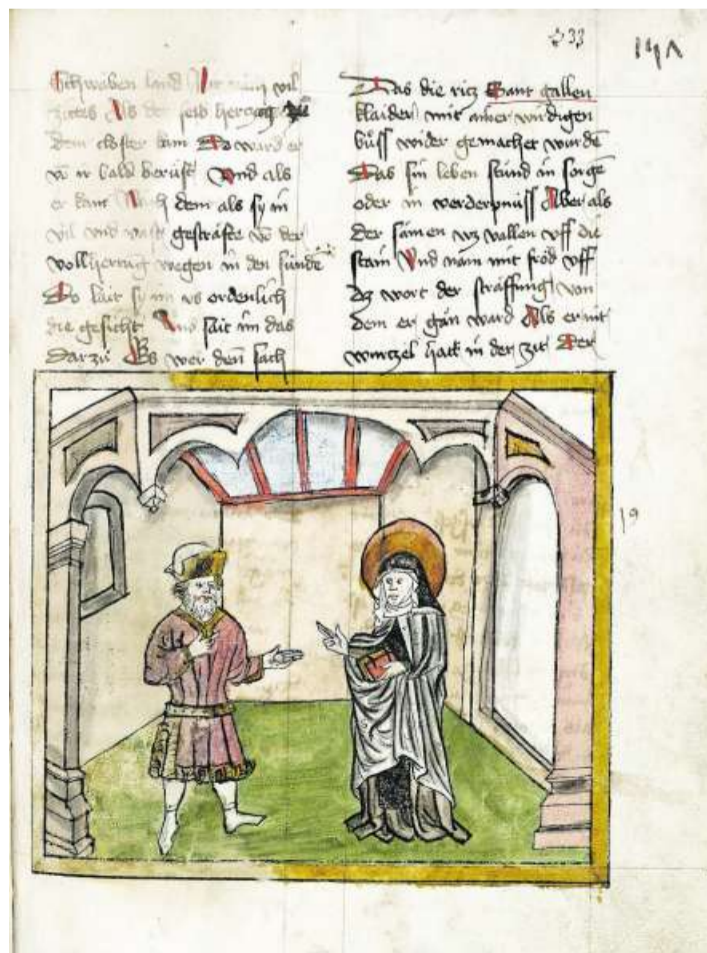 33
Schwaben land nam vil
zittes Als der selb herczog zů
dem closter kam Do ward er
vō ir bald berůft Vnd als
er kam Nach dem als sy in
vil vnd vast gesträfte vō der
wegen in den sünde
Do lait sy im vs ordenlich
die gesicht Vnd sait im das
darzů Es wer den sach
Das die ricz Sant gallen
klaider mit ainer wirdigen
bůss wider gemachet wurdē
Das sin leben stünd in sorgē
oder in verderpnüss Aber als
der sämen wz vallen vff die
stain Vnd nam mit fröd vff
dz wort der sträffung Von
dem er gän ward Als er nit
wurczel hatt in der zit Der
19